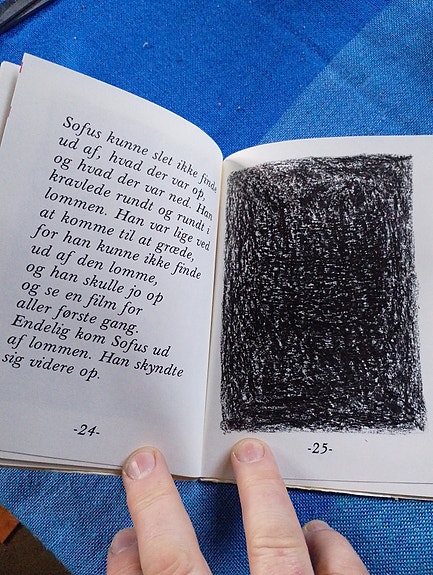 Sofus kunne slet ikke finde
ud af, hvad der var op,
og hvad der var ned. Han
kravlede rundt og rundt i
lommen. Han var lige ved
at komme til at græde,
for han kunne ikke finde
ud af den lomme,
og han skulle jo op
og se en film for
aller første gang.
Endelig kom Sofus ud
af lommen. Han skyndte
sig videre op.
-24-
-25-